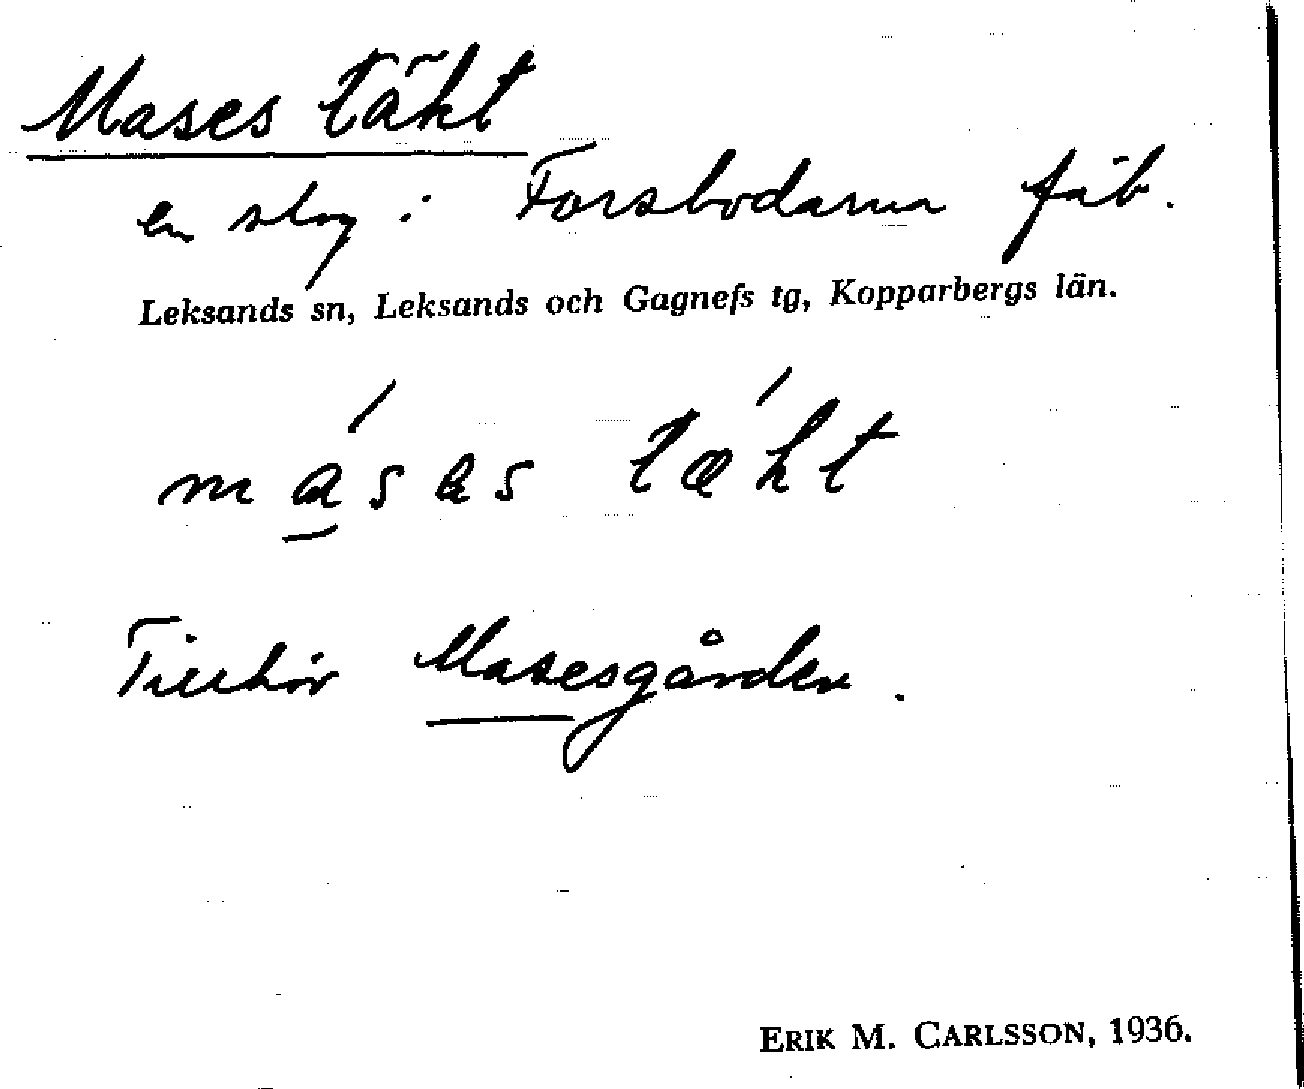 Mases täkt
en slog i Forsbodarna fäb.
Leksands sn, Leksands och Gagnefs tg, Kopparbergs län.
ma̲´sas tæ´kt
Tillhör Masesgården.
ERIK M. CARLSSON, 1936.